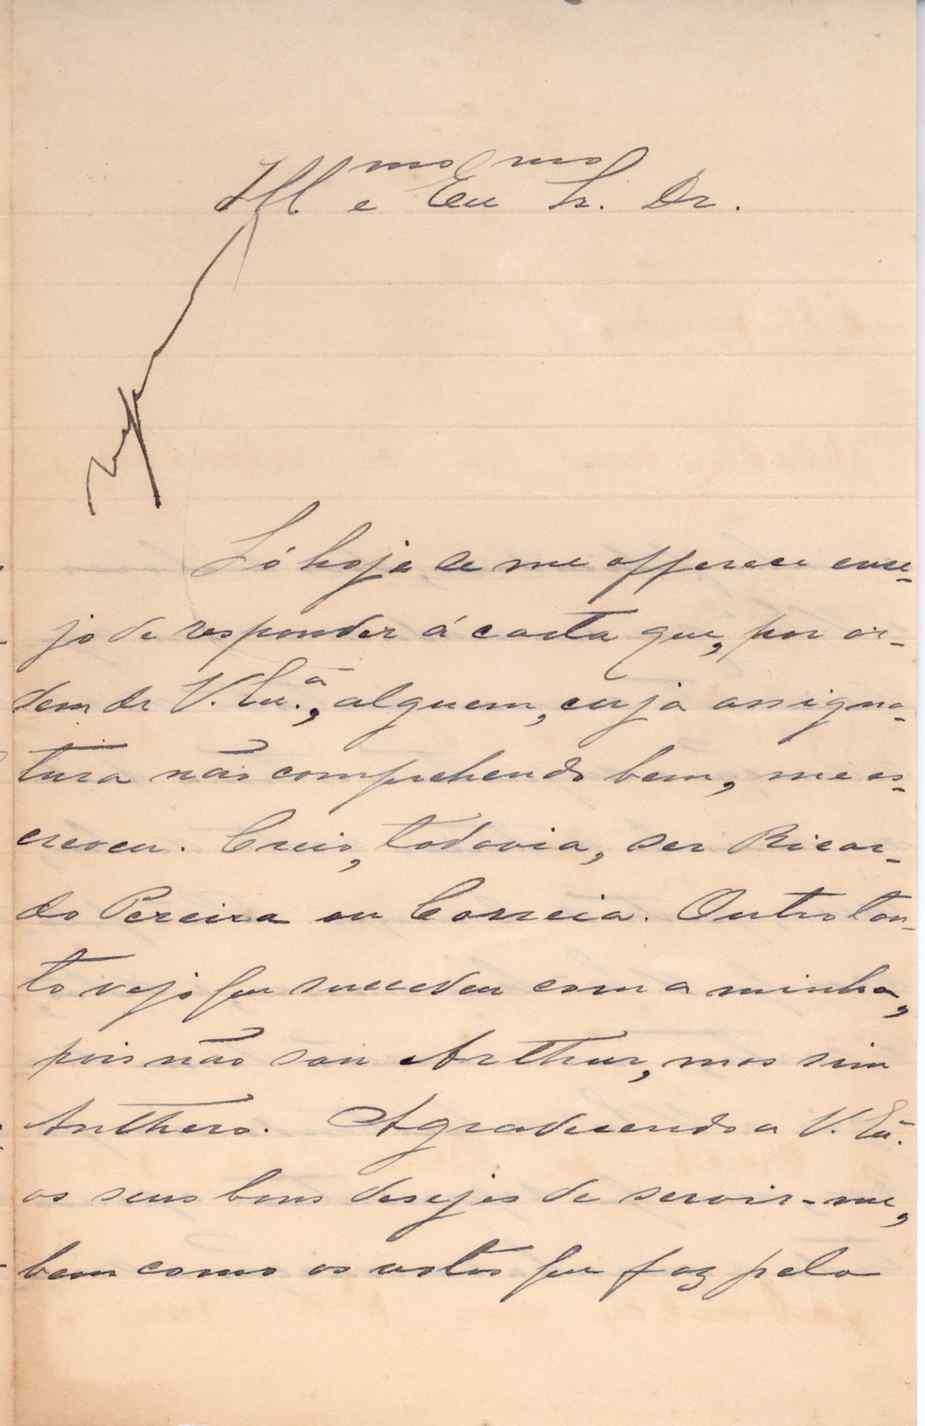 Ill mo e Ex mo Sr. Dr.
Só hoje se me offerece ense-
jo de responder á carta que, por or-
dem de V. Ex.ª, alguem, cuja assigna-
tura não comprehendo bem, me es-
creveu. Creio, todavia, ser Ricar-
do Pereira ou Correia. Outro tan-
to vejo que succedeu com a minha,
pois não sou Arthur, mas sim
Anthero. Agradecendo a V. Exª.
os seus bons desejos de servir-me,
bem como os votos que faz pela